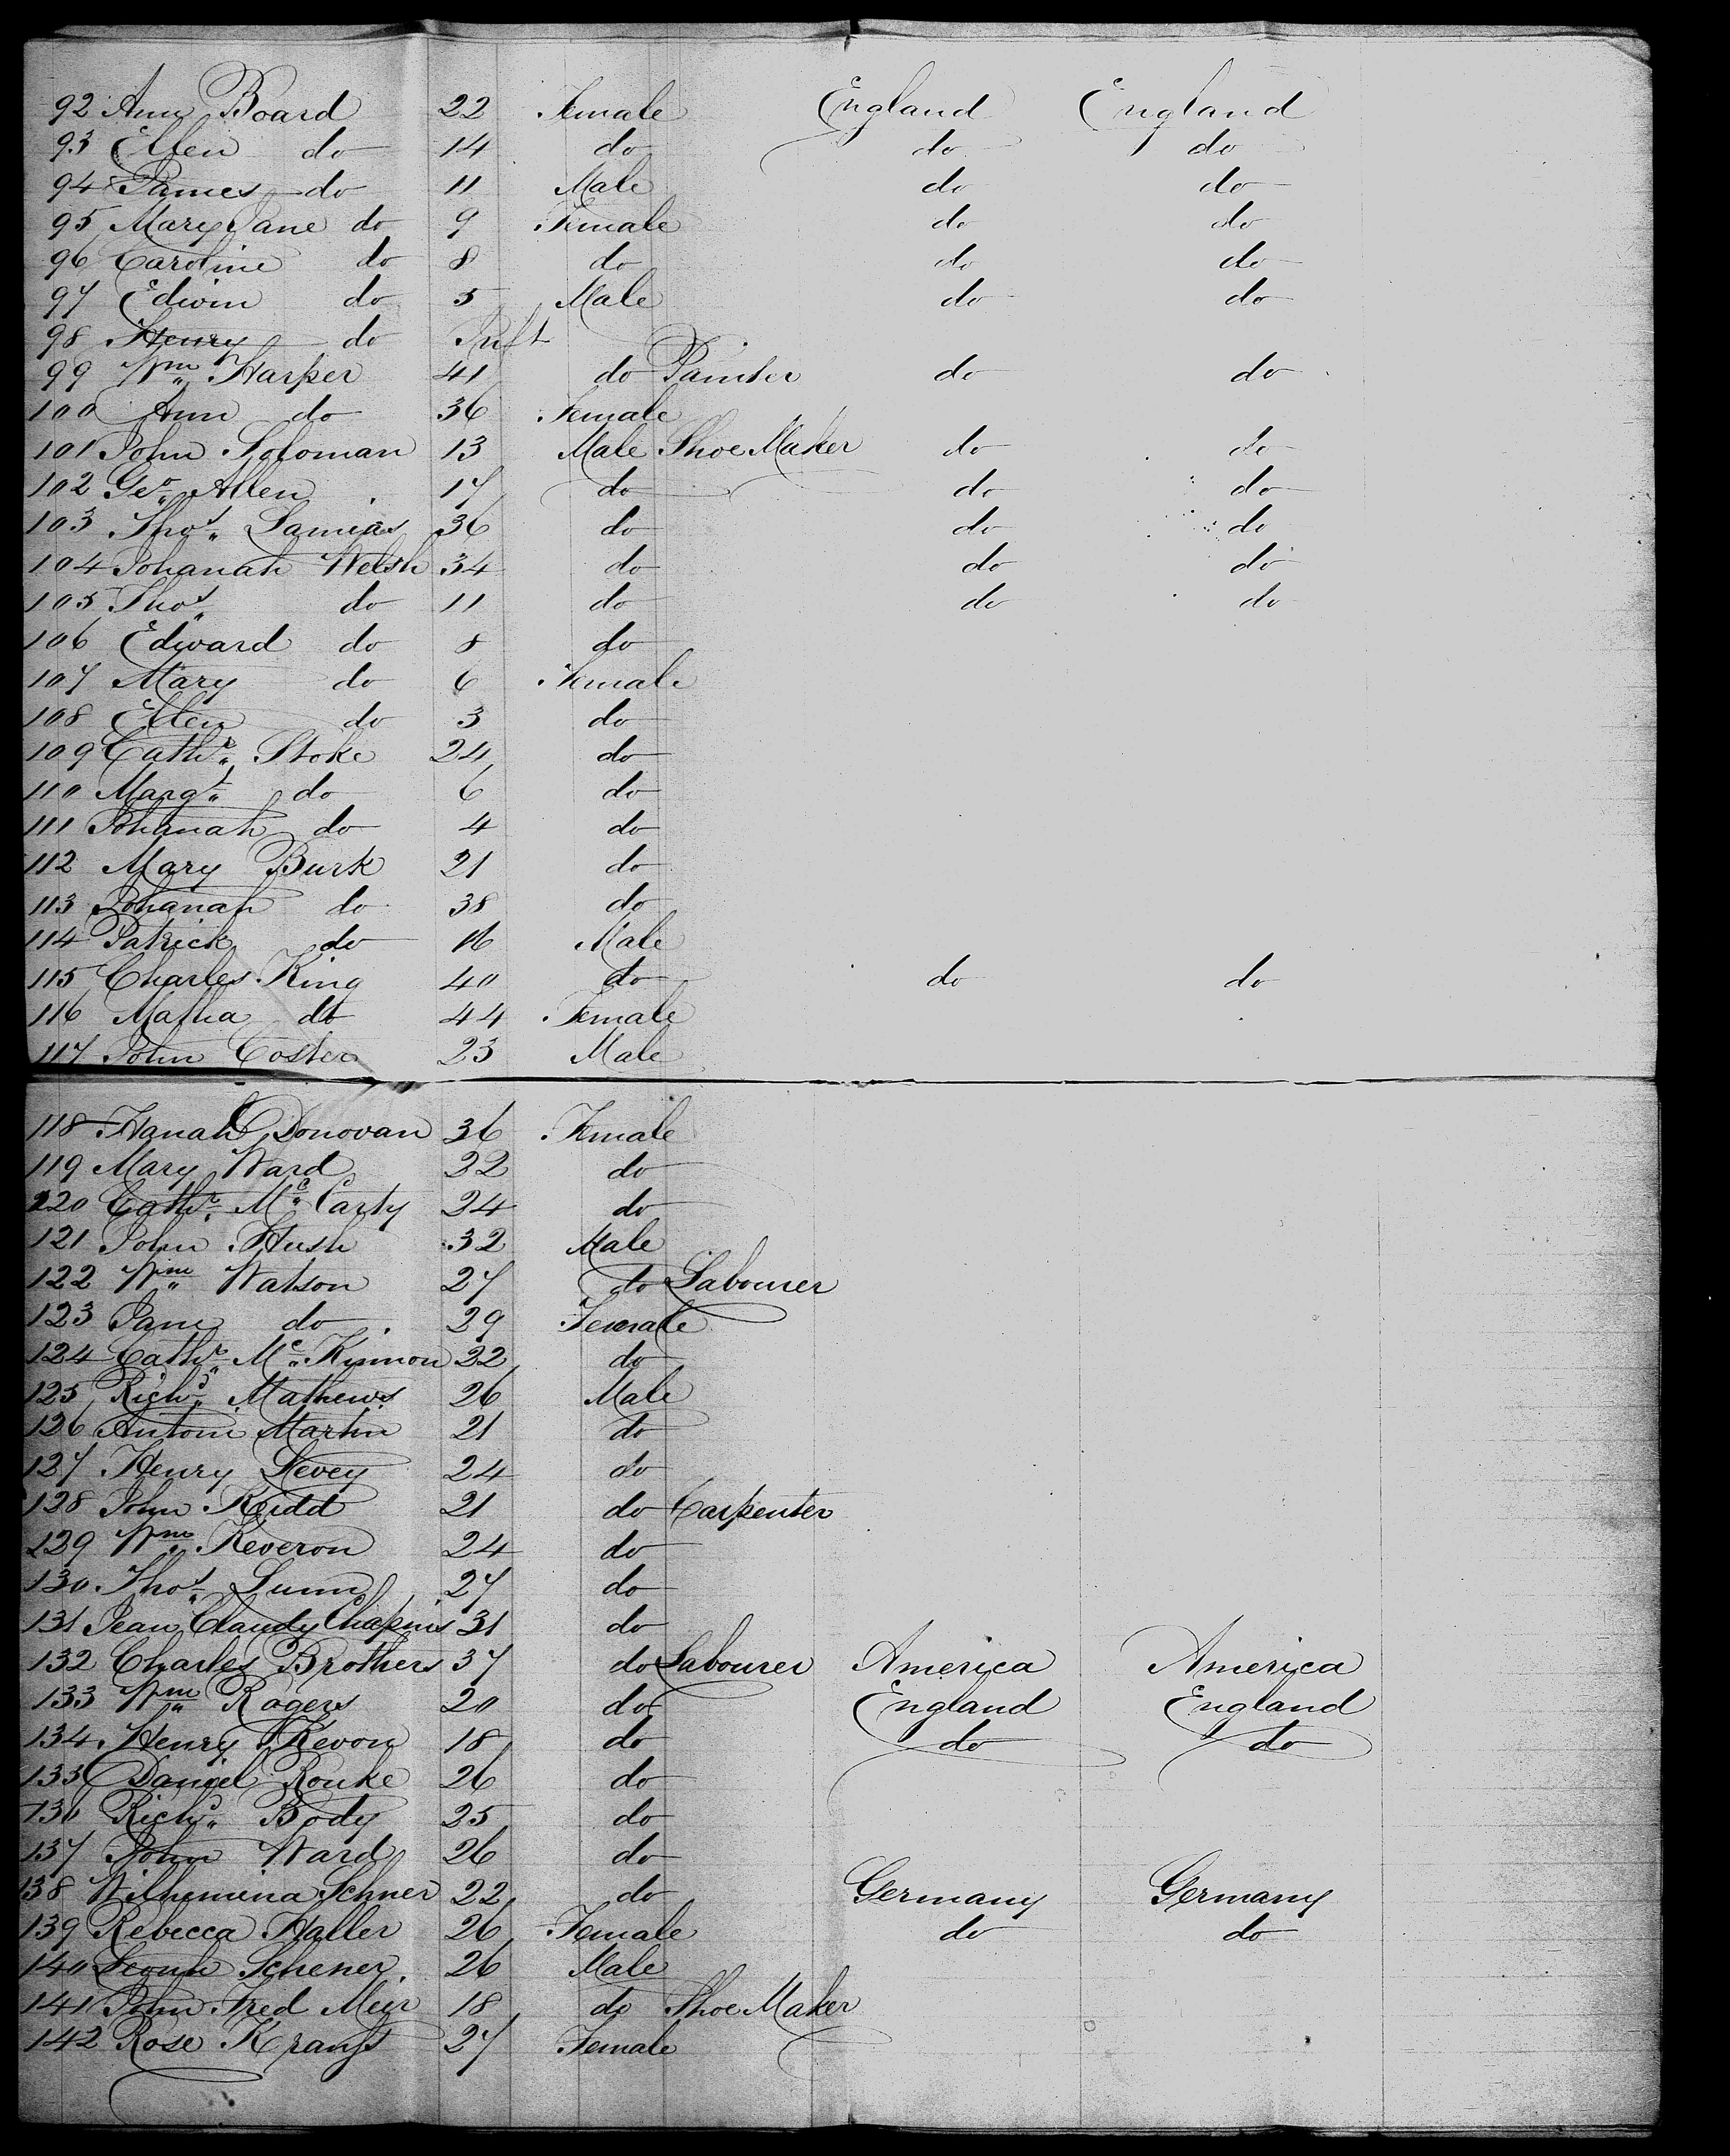 92 Ann Board 22 Female England England
93 Ellen do 14 do do do
94 James do 11 Male do do
95 Mary Jane do 9 Female do do
96 Caroline do 8 do do do
97 Edwin do 5 Male do do
98 Henry do Inft
99 Wm Harper 41 do Painter do do
100 Ann do 36 Female
101 John Soloman 13 Male Shoe Maker do do
102 Geo. Allen 17 do do do
103 Thos. 36 do do do
104 Johanah Welsh 34 do do do
105 Thos. do 11 do do do
106 Edward do 8 do
107 Mary do 6 Female
108 Ellen do 3 do
109 Cathe. Stoke 24 do
110 Margt. do 6 do
111 Johanah do 4 do
112 Mary Burk 21 do
113 Johanah do 38 do
114 Patrick do 16 Male
115 Charles King 40 do do do
116 Matha do 44 Female
117 John Coster 23 Male
118 Hanah Donovan 36 Female
119 Mary Ward 32 do
120 Cathe. Mc. Carty 24 do
121 John Hush 32 Male
122 Wm. Watson 27 do Labourer
123 Jane do 29 Female
124 Cathe. Mc. Kinnon 22 do
125 Richd. Mathews 26 Male
126 Antoni Martin 21 do
127 Henry Levey 24 do
128 John Kidd 21 do Carpenter
129 Wm. Keveron 24 do
130 Thos. Lunn 27 do
131 Jean Claudy 31 do
132 Charles Brothers 37 do Labourer America America
133 Wm. Rogers 20 do England England
134 Henry Kevon 18 do do do
133 Daniel Rouke 26 do
136 Richd. Body 25 do
137 John Ward 26 do
138 Wilhemina Schner 22 do Germany Germany
139 Rebecca Haller 26 Female do do
140 Schener 26 Male
141 John Fred Meir 18 do Shoe Maker
142 Rose 27 Female